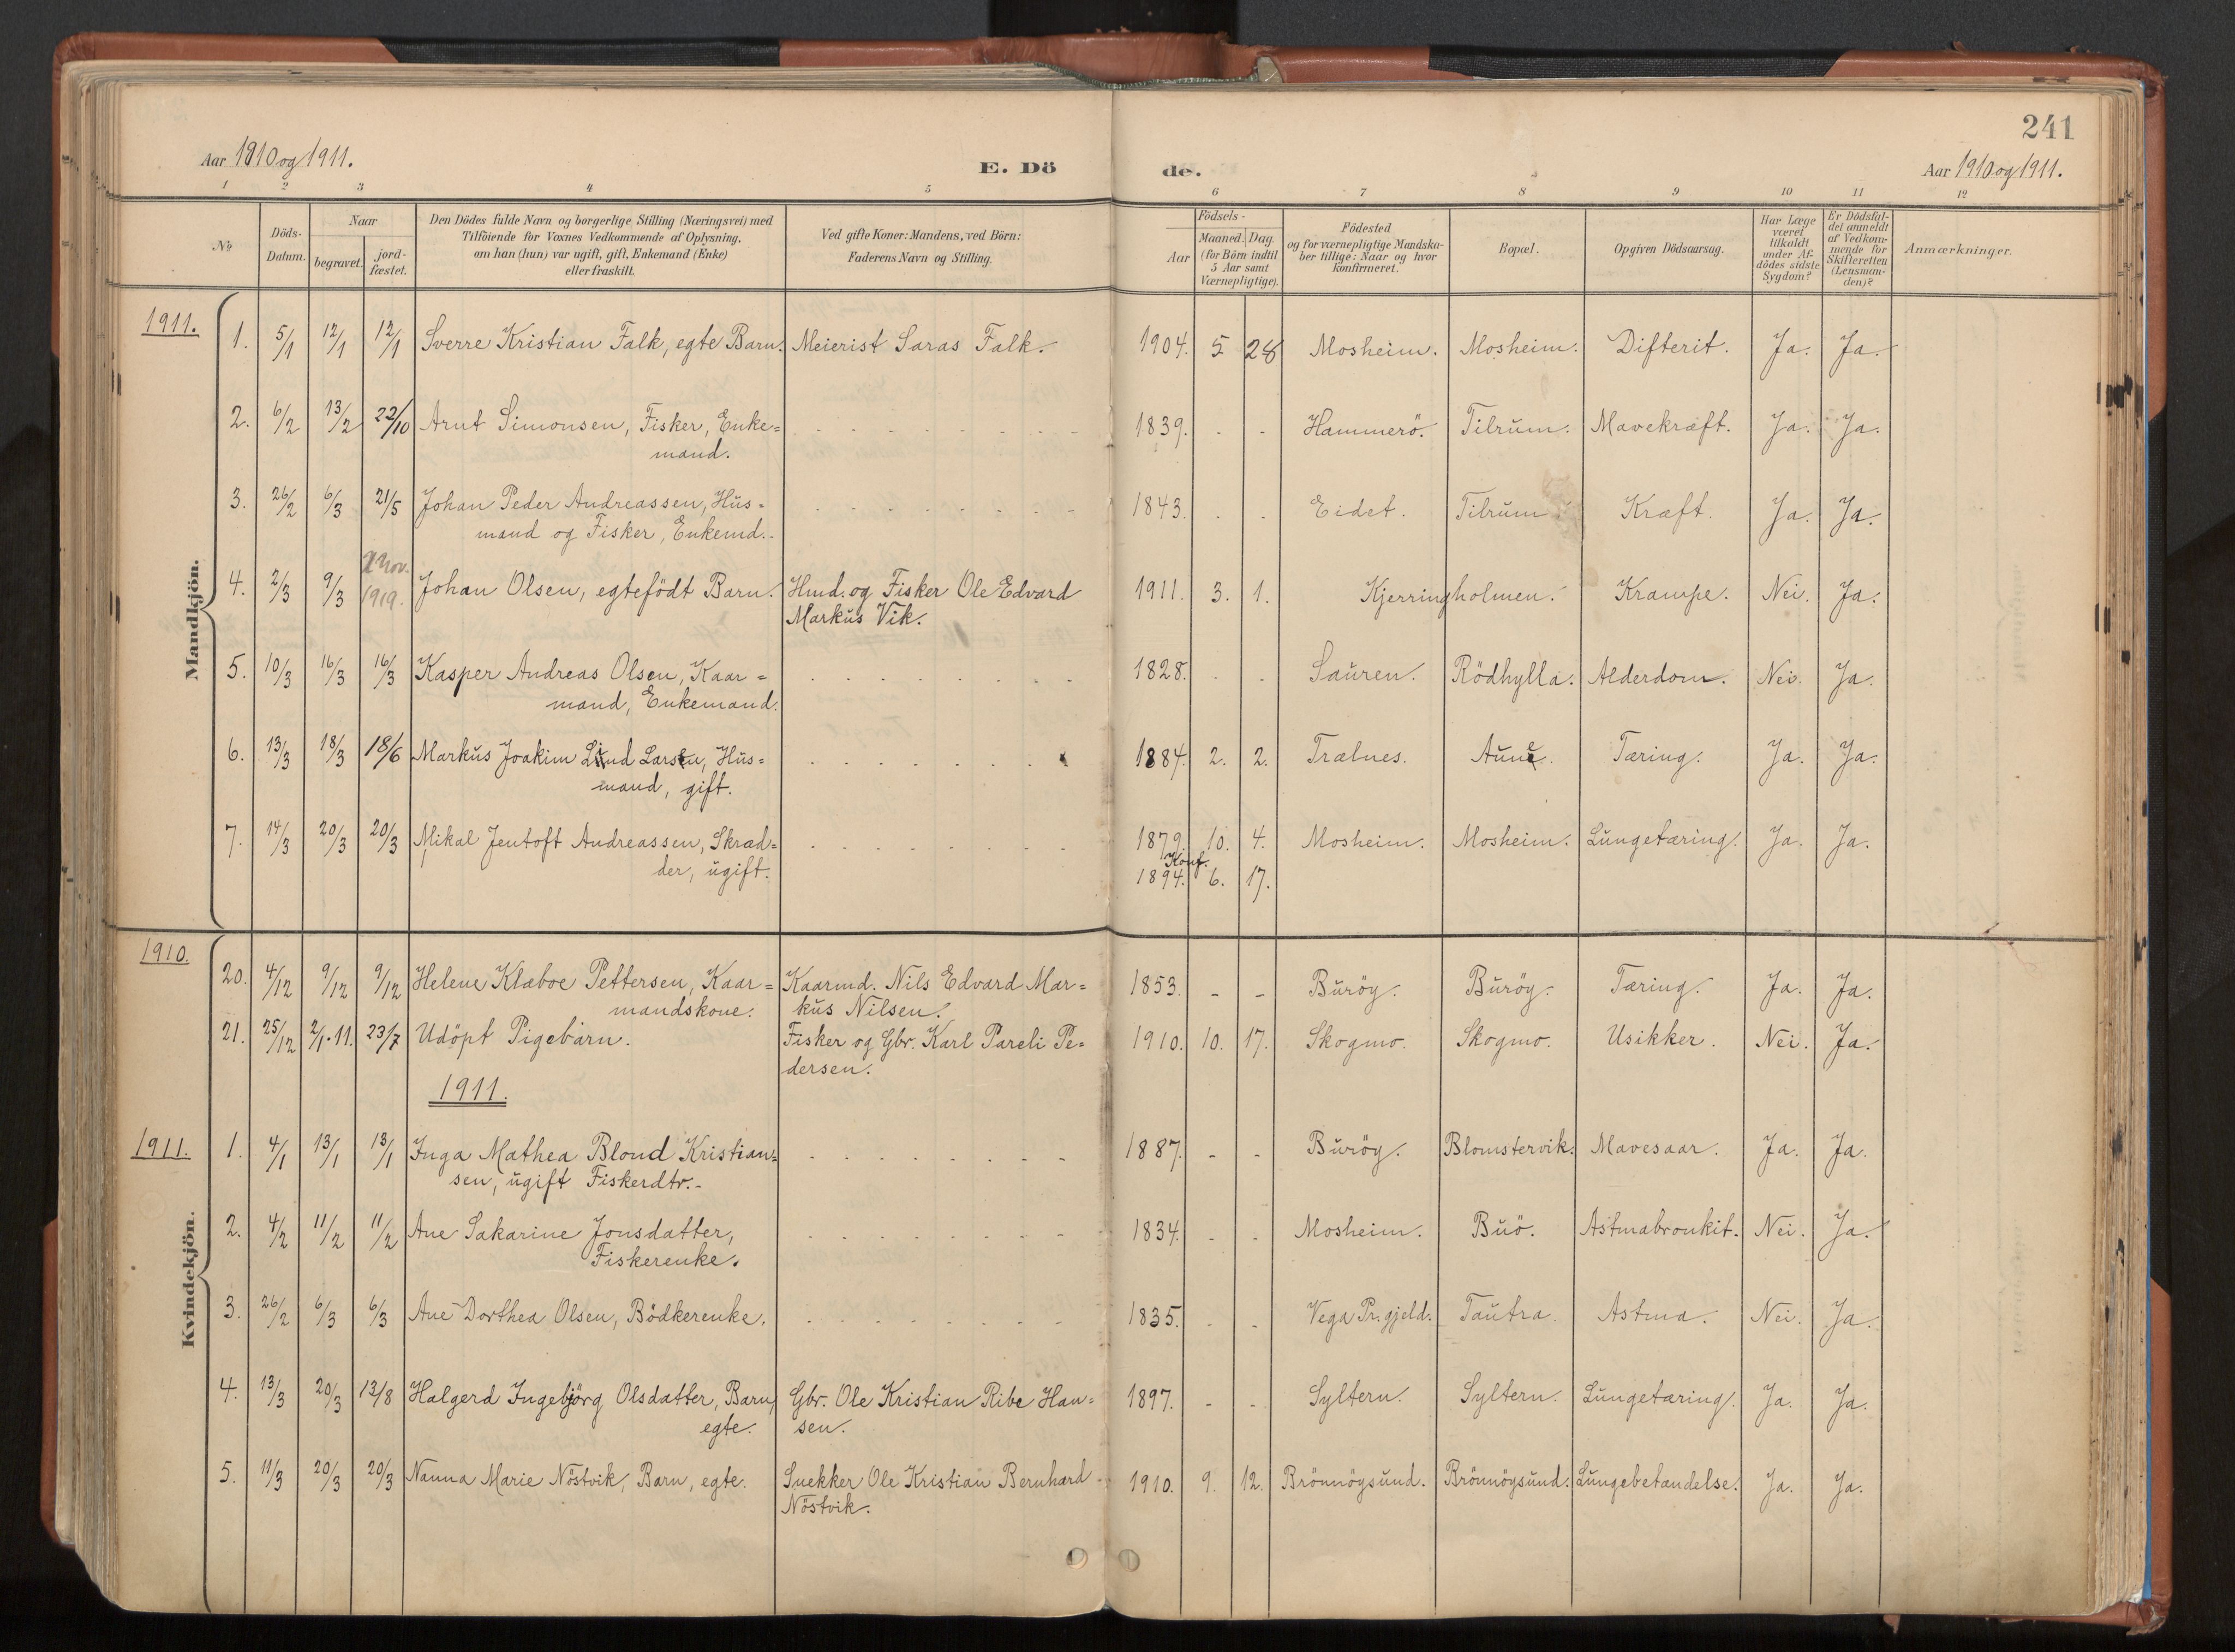 241
Aar 1910 og 1911.
E. Dö
de.
Aar 1910 og 1911.
1 2 3 4 5 6 7 8 9 10 11 12
No
Döds-
Datum.
Naar
begravet.
jord-
fæstet.
Den Dödes fulde Navn og borgerlige Stilling (Næringsvei) med
Tilföiende for Voxnes Vedkommende af Oplysning,
om han (hun) var ugift, gift, Enkemand (Enke)
eller fraskilt.
Ved gifte Koner: Mandens, ved Börn:
Faderens Navn og Stilling.
Födsels-
Aar
Maaned. Dag.
(for Börn indtil
5 Aar samt
Værnepligtige).
Födested
og for værnepligtige Mandska-
ber tillige: Naar og hvor
konfirmeret.
Bopæl.
Opgiven Dödsaarsag.
Har Læge
været
tilkaldt
under Af-
dödes sidste
Sygdom?
Er Dödsfal-
det anmeldt
af Vedkom-
mende for
Skifteretten
(Lensman-
den)?
Anmærkninger.
Mandkjön.
1911. 1. 5/1 12/1 12/1 Sverre Kristian Falk, egte Barn. Meierist Saras Falk. 1904. 5 28 Mosheim. Mosheim. Difterit. Ja. Ja.
2. 6/2 13/2 22/10 Arnt Simonsen, Fisker, Enke= - - - - - - - - 1839. - - Hammerö. Tilrum. Mavekræft. Ja. Ja.
mand.
3. 26/2 6/3 21/5 Johan Peder Andreassen, Hus= - - - - - - - - 1843. - - Eidet. Tilrum Kræft. Ja. Ja.
mand og Fisker, Enkemd.
Nov.
4. 2/3 9/3 1919. Johan Olsen, egtefödt Barn. Hmd. og Fisker Ole Edvard 1911. 3. 1. Kjerringholmen. Krampe. Nei. Ja.
Markus Vik.
5. 10/3 16/3 16/3 Kasper Andreas Olsen, Kaar= - - - - - - - - 1828. - - Sauren. Rödhylla. Alderdom. Nei. Ja.
mand, Enkemand.
6. 13/3 18/3 18/6 Markus Joakim Lund Larsen, Hus= - - - - - - - - 1884. 2. 2. Trælnes. Aune. Tæring. Ja. Ja.
mand, gift.
7. 14/3 20/3 20/3 Mikal Jentoft Andreassen, Skræd= - - - - - - - - 1879. 10. 4. Mosheim. Mosheim. Lungetæring. Ja. Ja.
der, ugift. Konf.
1894. 6. 17.
Kvindekjön.
1910. 20. 4/12 9/12 9/12 Helene Klæboe Pettersen, Kaar= Kaarmd. Nils Edvard Mar= 1853. - - Buröy. Buröy. Tæring. Ja. Ja.
mandskone. kus Nilsen.
21. 25/12 2/1.11. 23/7 Udöpt Pigebarn. Fisker og Gbr. Karl Pareli Pe= 1910. 10. 17. Skogmo. Skogmo. Usikker. Nei. Ja.
dersen.
1911.
1911. 1. 4/1 13/1 13/1 Inga Mathea Blond Kristian= - - - - - - - - 1887. - - Buröy. Blomstervik. Mavesaar. Ja. Ja.
sen, ugift Fiskerdtr.
2. 4/2 11/2 11/2 Ane Sakarine Jonsdatter, - - - - - - - - 1834. - - Mosheim. Buö. Astmabronkit. Nei. Ja.
Fiskerenke.
3. 26/2 6/3 6/3 Ane Dorthea Olsen, Bödkerenke. - - - - - - - - 1835. - - Vega Pr.gjeld. Tautra. Astma. Nei. Ja.
4. 13/3 20/3 13/8 Halgerd Ingebjörg Olsdatter, Barn, Gbr. Ole Kristian Ribe Han= 1897. - - Syltern. Syltern. Lungetæring. Ja. Ja.
egte. sen.
5. 11/3 20/3 20/3 Nanna Marie Nöstvik, Barn, egte. Snekker Ole Kristian Bernhard 1910. 9. 12. Brönnöysund. Brönnöysund. Lungebetændelse. Ja. Ja.
Nöstvik.